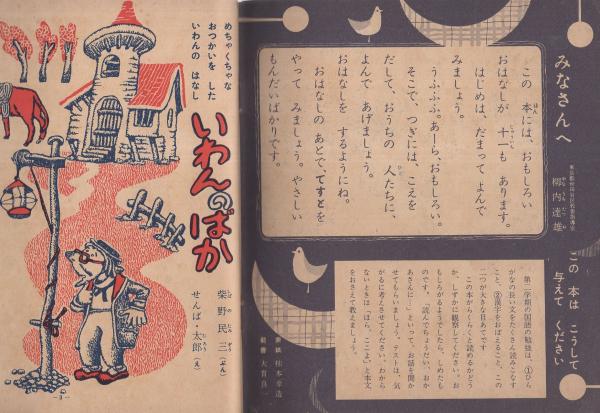 みなさんへ
柳内達雄
この 本には、おもしろい
おはなしが 十一も あります。
はじめは、だまって よんで
みましょう。
うふふふ。あーら、おもしろい。
そこで、つぎには、こえを
だして、おうちの 人たちに、
よんで あげましょう。
おはなしを するようにね。
おはなしの あとで、てすとを
やって みましょう。やさしい
もんだいばかりです。
この 本は こうして
与えて ください
第二学期の国語の勉強は、①ひら
がなの長い文をたくさん読みこなす
こと、②漢字をおぼえること、この
二つが大きな目あてです
この本がらくらくと読めるかどう
か、しずかに観察してください。お
もしろがるようでしたら、しめたも
のです。「読んでちょうだい、おか
あさんに」といって、お話を聞か
せてもらいましょう。テストは、気
がるに考えさせてください。わから
ないときは「ほら、ここよ」と本文
をおさえて教えましょう。
めちゃくちゃな
おつかいを した
いわんの はなし
いわんのばか
柴野民三(ぶん)
せんば・太郎(え)